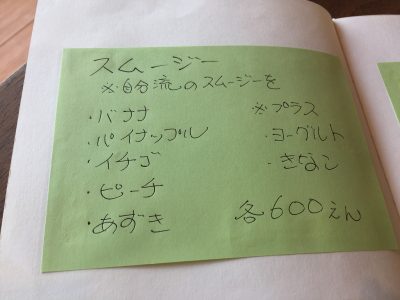 スムージー
※自分流のスムージーを
・バナナ
・パイナップル
・イチゴ
・ピーチ
・あずき
※プラス
・ヨーグルト
・きなこ
各600えん